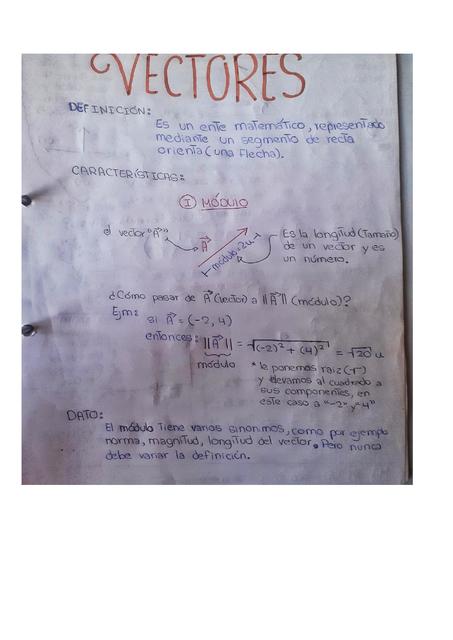 VECTORES
DEFINICIÓN:
Es un ente matemático, representado
mediante un segmento de recta
orienta (una flecha).
CARACTERÍSTICAS:
I MÓDULO
el vector "A⃗"
A⃗
módulo=2u
Es la longitud (tamaño)
de un vector y es
un número.
¿Cómo pasar de A⃗ (vector) a ||A⃗|| (módulo)?
Ejm:
si A⃗ = (-2, 4)
entonces: ||A⃗|| = √(-2)² + (4)² = √20 u
módulo
* le ponemos raiz (√)
y elevamos al cuadrado a
sus componentes, en
este caso a "-2" y "4"
DATO:
El módulo tiene varios sinonimos, como por ejemplo
norma, magnitud, longitud del vector. Pero nunca
debe variar la definición.